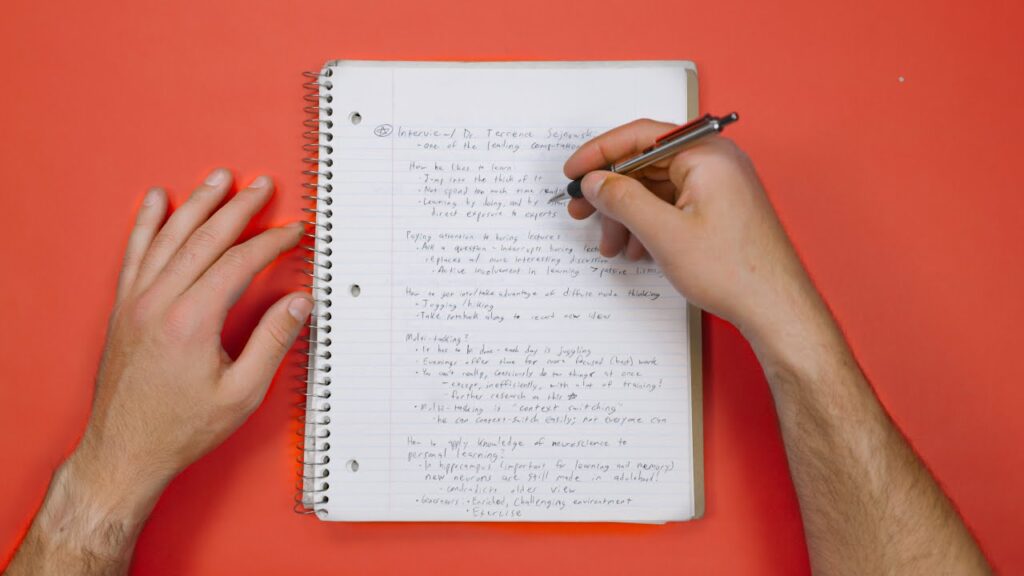 Interview w/ Dr. Terrence Sejnowski
- one of the leading computation
How he likes to learn:
- Jump into the thick of it
- Not spend too much time
- Learning by doing, and by
direct exposure to experts
Paying attention to boring lectures:
• Ask a question - interrupts boring lecture
replaces w/ more interesting discussion
• Active involvement in learning > passive
How to get into/take advantage of diffuse mode thinking
- Jogging/hiking
- Take notebook along to record new ideas
Multi-tasking?
• It has to be done - each day is juggling
• Evenings offer time for more focused (best) work
• You can't really, consciously do two things at once
- except, inefficiently, with a lot of training?
- further research on this
• Multi-tasking is "context switching"
- he can context-switch easily; not everyone can
How to apply knowledge of neuroscience to
personal learning:
- In hippocampus (important for learning and memory)
new neurons are still made in adulthood!
- contradicts older view
• Enriched, challenging environment
• Exercise